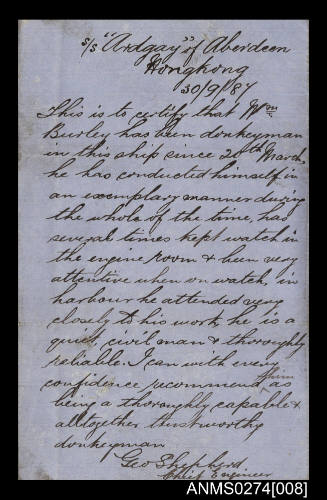 s/s "Ardgay" of Aberdeen
Hongkong
30/9/87
This is to certify that Wm
Burley has been donkeyman
in this ship since 20th March,
he has conducted himself in
an exemplary manner during
the whole of the time, has
several times kept watch in
the engine room & been very
attentive when on watch, in
harbour he attended very
closely to his work, he is a
quiet, civil man & thoroughly
reliable. I can with every
confidence recommend him as
being a thoroughly capable &
altogether trustworthy
donkeyman
Geo Shepherd
Chief Engineer
ANMS0274[008]